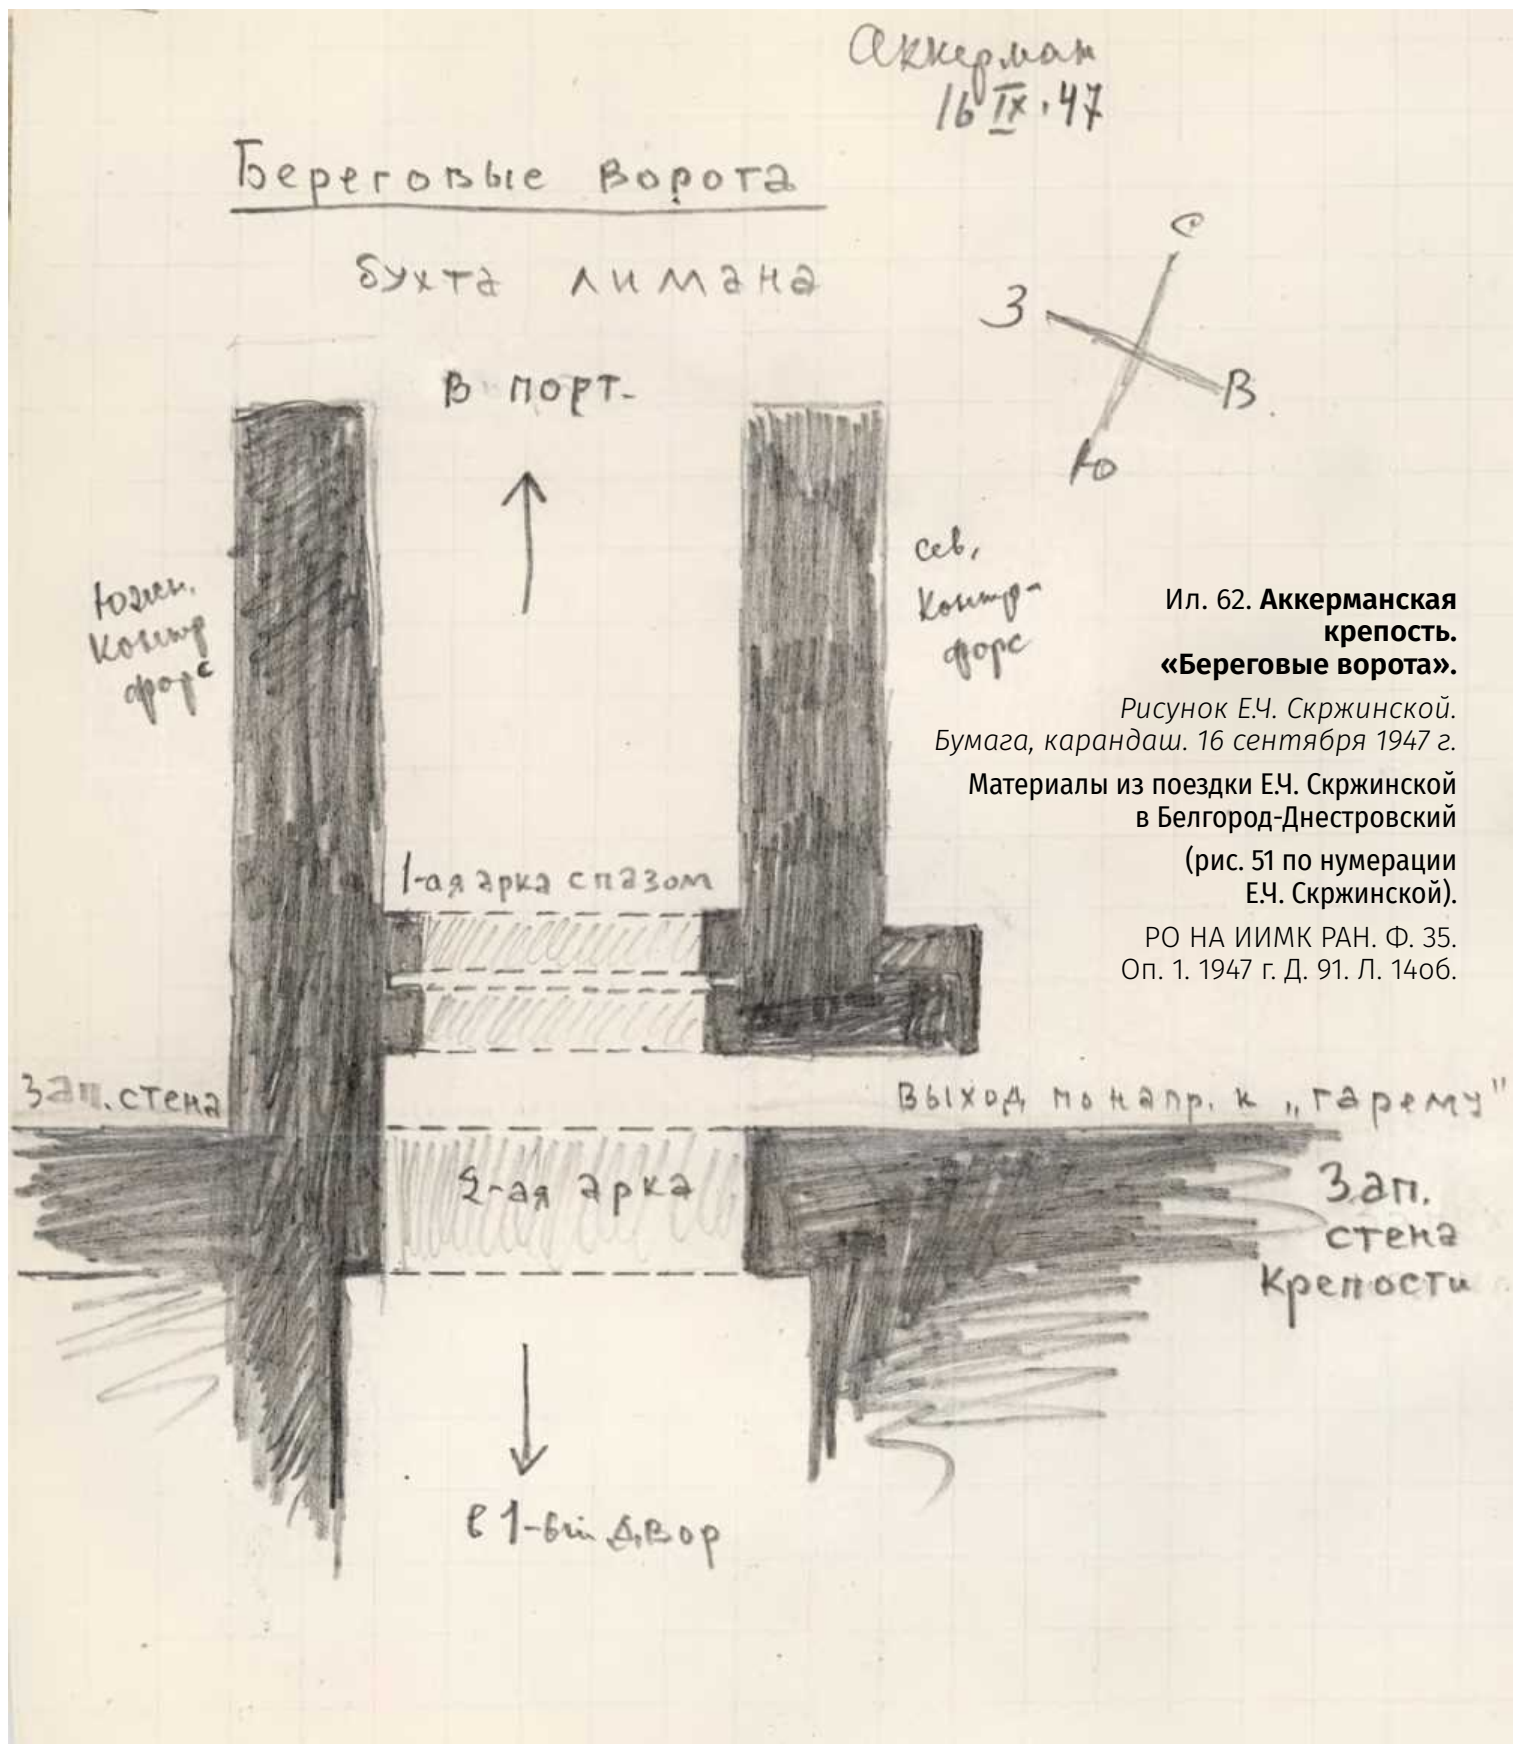 Аккерман
16 IX.47
Береговые ворота
бухта лимана
С
З
В.
Ю
в порт.
Южн.
контр
форс
сев.
контр-
форс
Ил. 62. Аккерманская
крепость.
«Береговые ворота».
Рисунок Е.Ч. Скржинской.
Бумага, карандаш. 16 сентября 1947 г.
Материалы из поездки Е.Ч. Скржинской
в Белгород-Днестровский
(рис. 51 по нумерации
Е.Ч. Скржинской).
РО НА ИИМК РАН. Ф. 35.
Оп. 1. 1947 г. Д. 91. Л. 14об.
1-ая арка с пазом
Зап. стена
выход по напр. к „гарему"
2-ая арка
Зап.
стена
крепости
в 1-ый двор